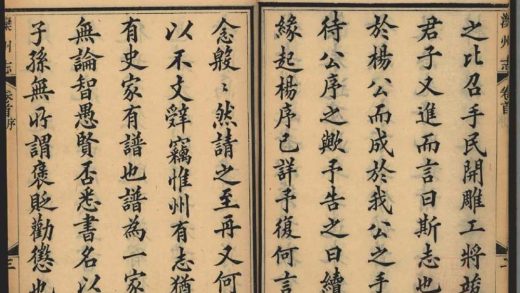 灤州志 卷首
之比召手民開雕工將竣
君子又進而言曰斯志也
於楊公而成於我公之手
待公序之歟予告之曰續
緣起楊序已詳予復何言
念殷〻然請之至再又何
以不文辭竊惟州有志猶
有史家有譜也譜為一家
無論智愚賢否悉書名以
子孫無所謂褒貶勸懲也
灤州志 卷首序 三